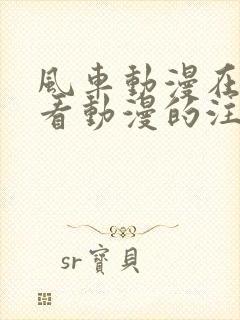 風車動漫在
看動漫的注
sr寶貝